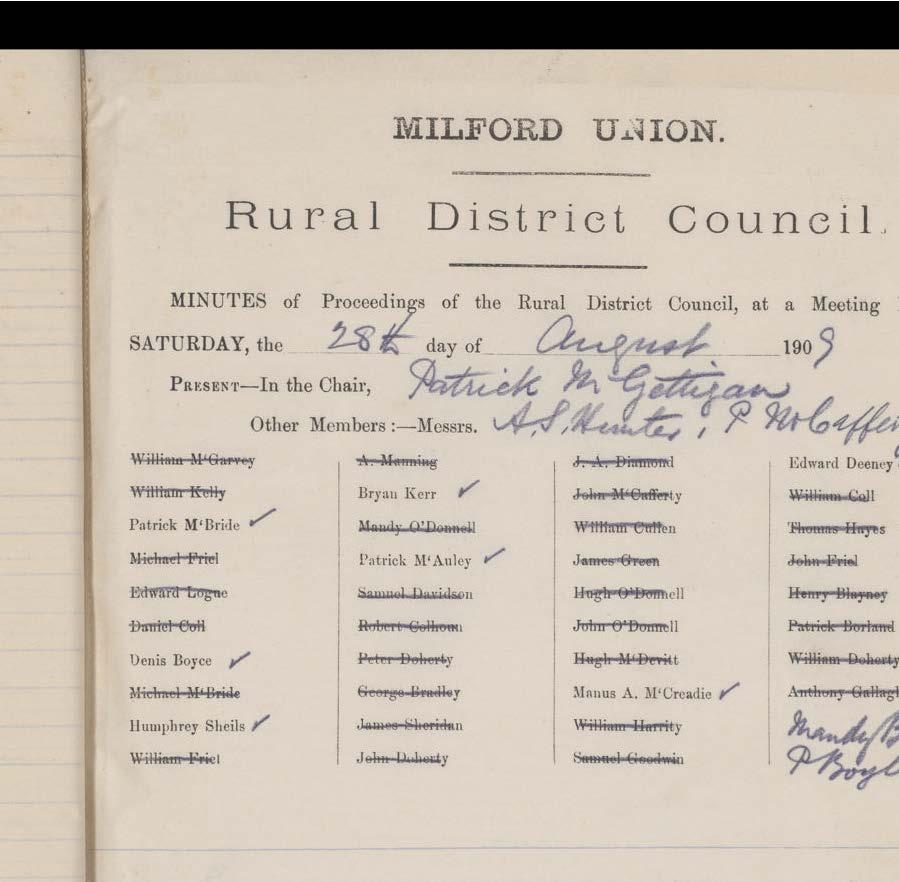 MILFORD UNION.
Rural District Council.
MINUTES of Proceedings of the Rural District Council, at a Meeting
SATURDAY, the 28th day of August 1909
PRESENT—In the Chair, Patrick McGettigan
Other Members:—Messrs. A.S. Hunter, P McCaffer
William M‘Garvey
William Kelly
Patrick M‘Bride ✓
Michael Friel
Edward Logue
Daniel Coll
Denis Boyce ✓
Michael M‘Bride
Humphrey Sheils ✓
William Friel
A. Manning
Bryan Kerr ✓
Mandy O'Donnell
Patrick M‘Auley ✓
Samuel Davidson
Robert Colhoun
Peter Doherty
George Bradley
James Sheridan
John Doherty
J. A. Diamond
John M‘Cafferty
William Cullen
James Green
Hugh O'Donnell
John O'Donnell
Hugh M‘Devitt
Manus A. M‘Creadie ✓
William Harrity
Samuel Goodwin
Edward Deeney
William Coll
Thomas Hayes
John Friel
Henry Blayney
Patrick Borland
William Doherty
Anthony Gallagh
Mandy B
P Boyl